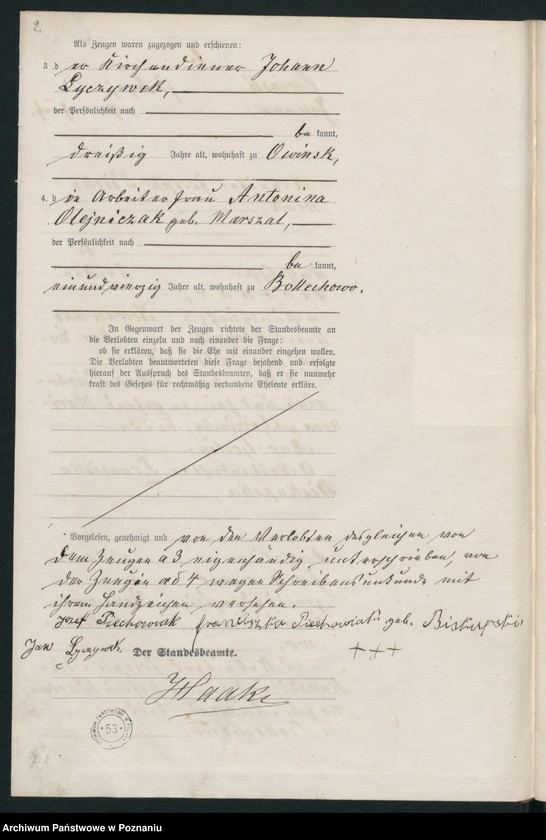 2.
Als Zeugen waren zugezogen und erschienen:
3. der Kirchendiener Johann
Lyczywek,
der Persönlichkeit nach
bekannt,
dreißig Jahre alt, wohnhaft zu Owinsk,
4. die Arbeiterfrau Antonina
Olejniczak geb. Marszal,
der Persönlichkeit nach
bekannt,
einundvierzig Jahre alt, wohnhaft zu Bollechowo.
In Gegenwart der Zeugen richtete der Standesbeamte an
die Verlobten einzeln und nach einander die Frage:
ob sie erklären, daß sie die Ehe mit einander eingehen wollen.
Die Verlobten beantworteten diese Frage bejahend und erfolgte
hierauf der Ausspruch des Standesbeamten, daß er sie nunmehr
kraft des Gesetzes für rechtmäßig verbundene Eheleute erkläre.
Vorgelesen, genehmigt und von den Verlobten desgleichen von
dem Zeugen ad 3 eigenhändig unterschrieben, von
der Zeugin ad 4 wegen Schreibensunkunde mit
ihrem Handzeichen versehen.
Jozef Piechowiak Franciszka Piechowiak geb. Biskupski
Jan Lyczywek. +++
Der Standesbeamte.
Haake
53
Archiwum Państwowe w Poznaniu